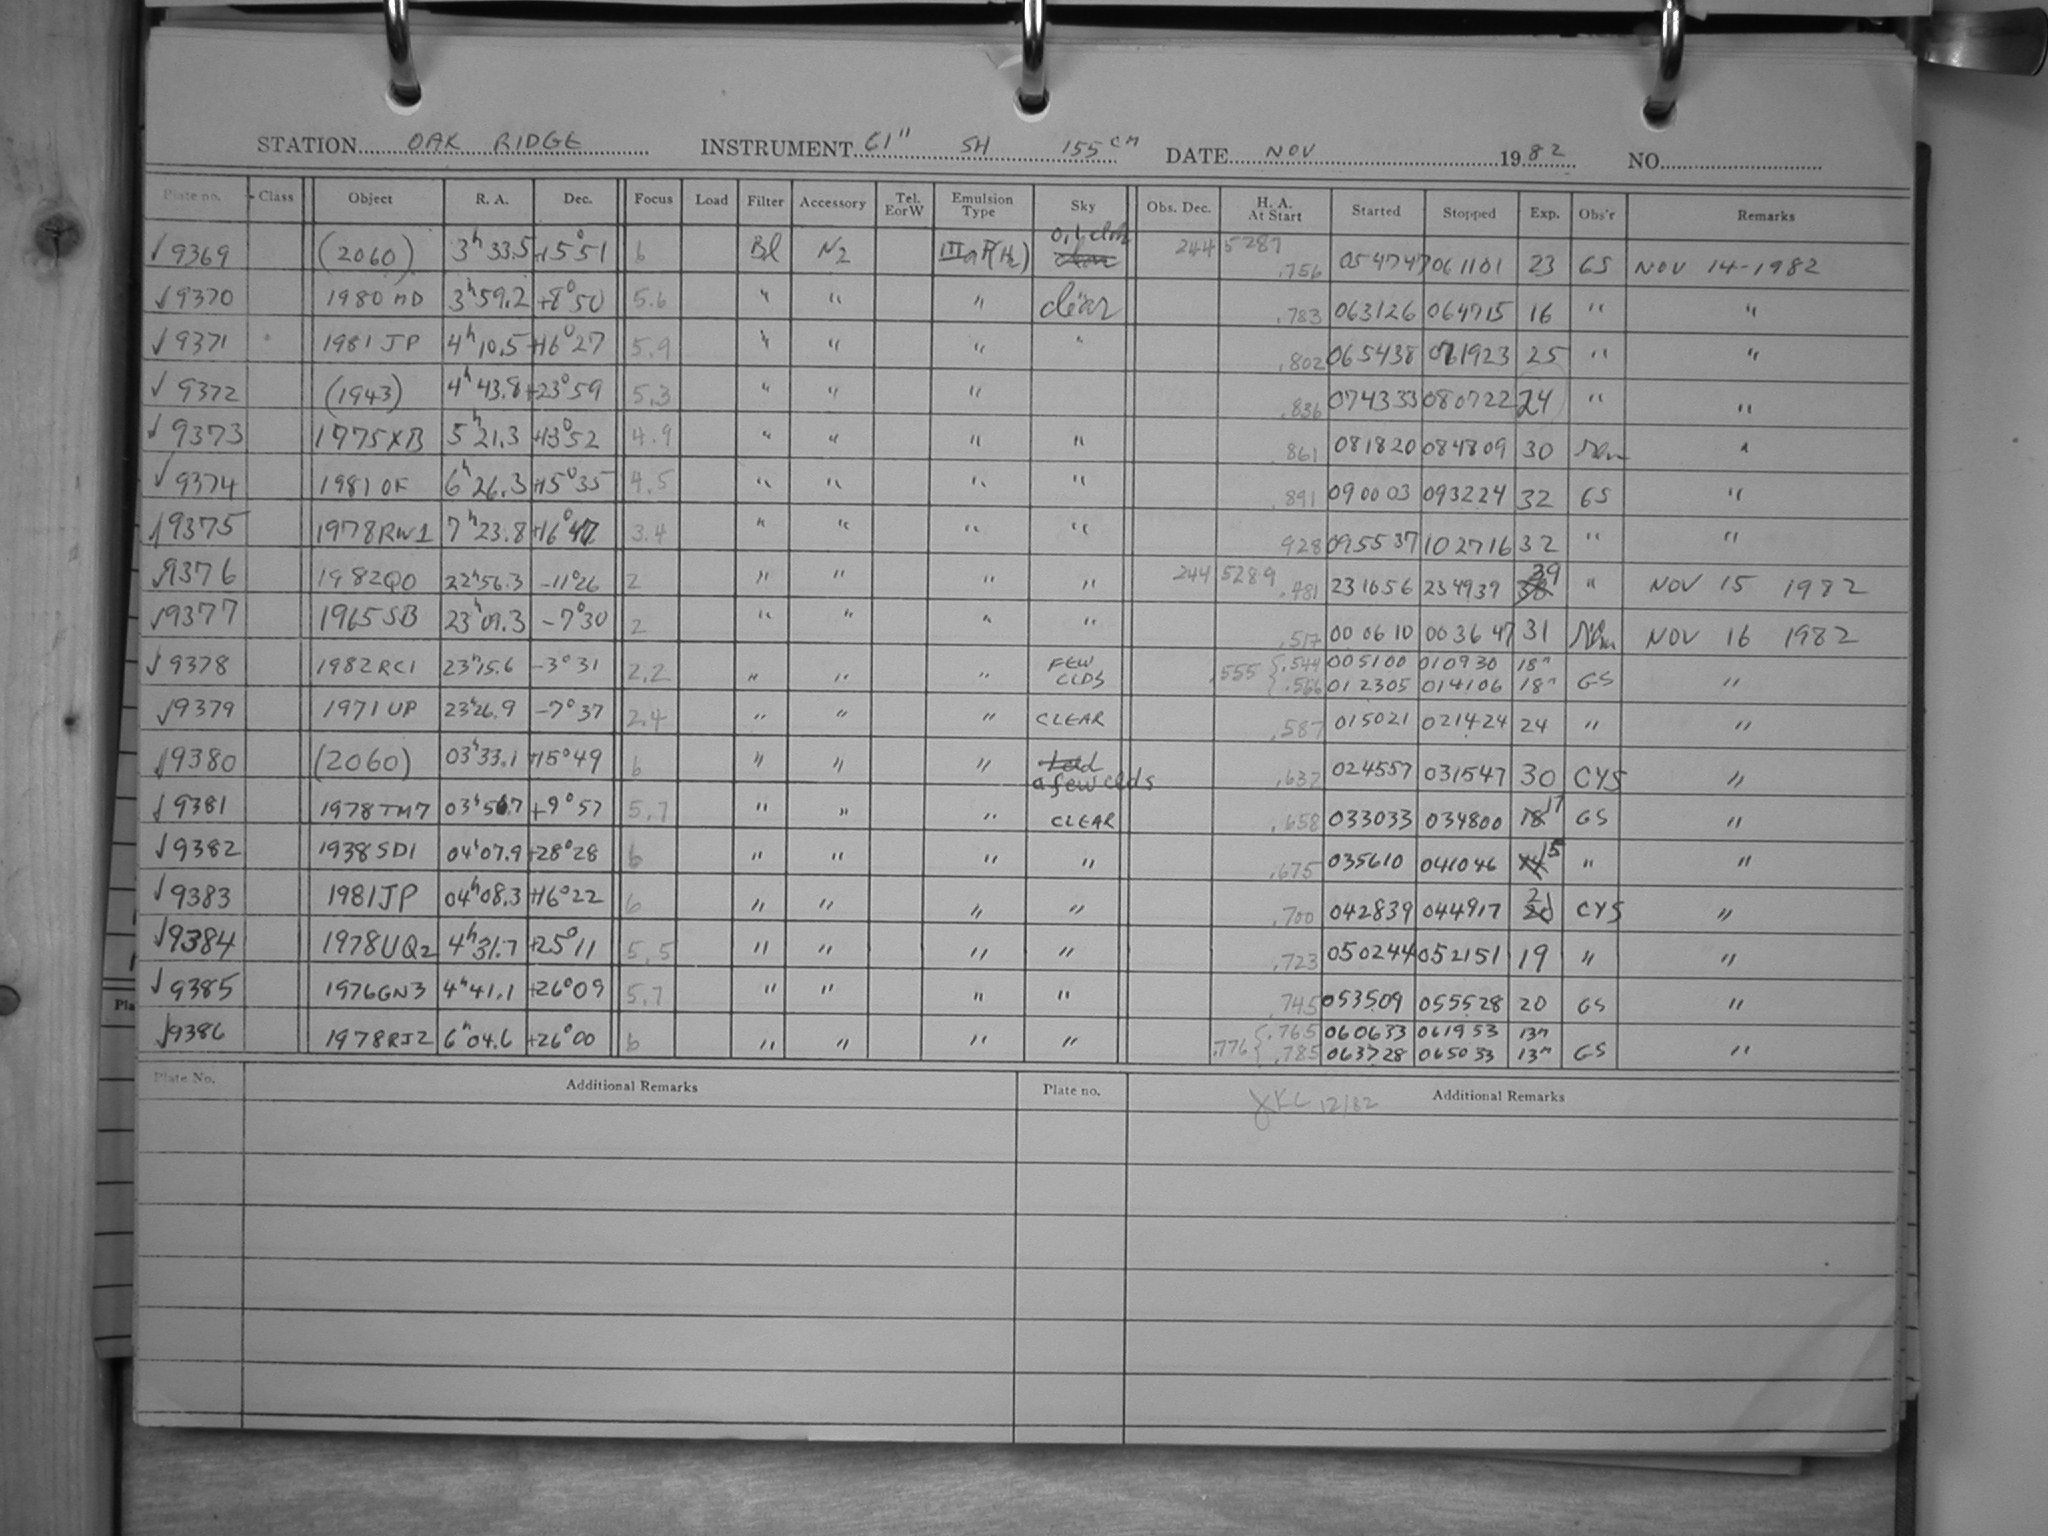 STATION OAK RIDGE INSTRUMENT 61" SH 155 cm DATE NOV 1982 NO.
Plate no. Class Object R. A. Dec. Focus Load Filter Accessory Tel. E or W Emulsion Type Sky Obs. Dec. H. A. At Start Started Stopped Exp. Obs'r Remarks
√9369 (2060) 3h33.5 +15°51 6 Bl N2 IIIaF(H2) 244 5287 .756 054747 061101 23 GS NOV 14-1982
√9370 1980 MD 3h59.2 +8°50 5.6 " " " clear .783 063126 064715 16 " "
√9371 1981 JP 4h10.5 +16°27 5.9 " " " " .802 065438 071923 25 " "
√9372 (1943) 4h43.8 +23°59 5.3 " " " .836 074333 080722 24 " "
√9373 1975XB 5h21.3 +13°52 4.9 " " " " 861 081820 084809 30 "
√9374 1981 OF 6h26.3 +15°35 4.5 " " " " .891 090003 093224 32 GS "
√9375 1978RW1 7h23.8 +16°47 3.4 " " " " 928 095537 102716 32 " "
√9376 1982QO 22h56.3 -11°26 2 " " " " 244 5289 .481 231656 234939 39 " NOV 15 1982
√9377 1965SB 23h09.3 -7°30 2 " " " " .517 000610 003647 31 NOV 16 1982
√9378 1982RC1 23h15.6 -3°31 2.2 " " " FEW CLDS .555 { .544 005100 010930 18m
.566 012305 014106 18m GS "
√9379 1971UP 23h26.9 -7°37 2.4 " " " CLEAR .587 015021 021424 24 " "
√9380 (2060) 03h33.1 +15°49 6 " " " a few clds .637 024557 031547 30 CYS "
√9381 1978TM7 03h56.7 +9°57 5.7 " " " CLEAR .658 033033 034800 17 GS "
√9382 1938SD1 04h07.9 +28°28 6 " " " " .675 035610 041046 15 " "
√9383 1981JP 04h08.3 +16°22 6 " " " " .700 042839 044917 21 CYS "
√9384 1978UQ2 4h31.7 +25°11 5.5 " " " " .723 050244 052151 19 " "
√9385 1976GN3 4h41.1 +26°09 5.7 " " " " .745 053509 055528 20 GS "
√9386 1978RJ2 6h04.6 +26°00 6 " " " " .776 { .765 060633 061953 13m
.785 063728 065033 13m GS "
Plate No. Additional Remarks Plate no. Additional Remarks
KC 12/82